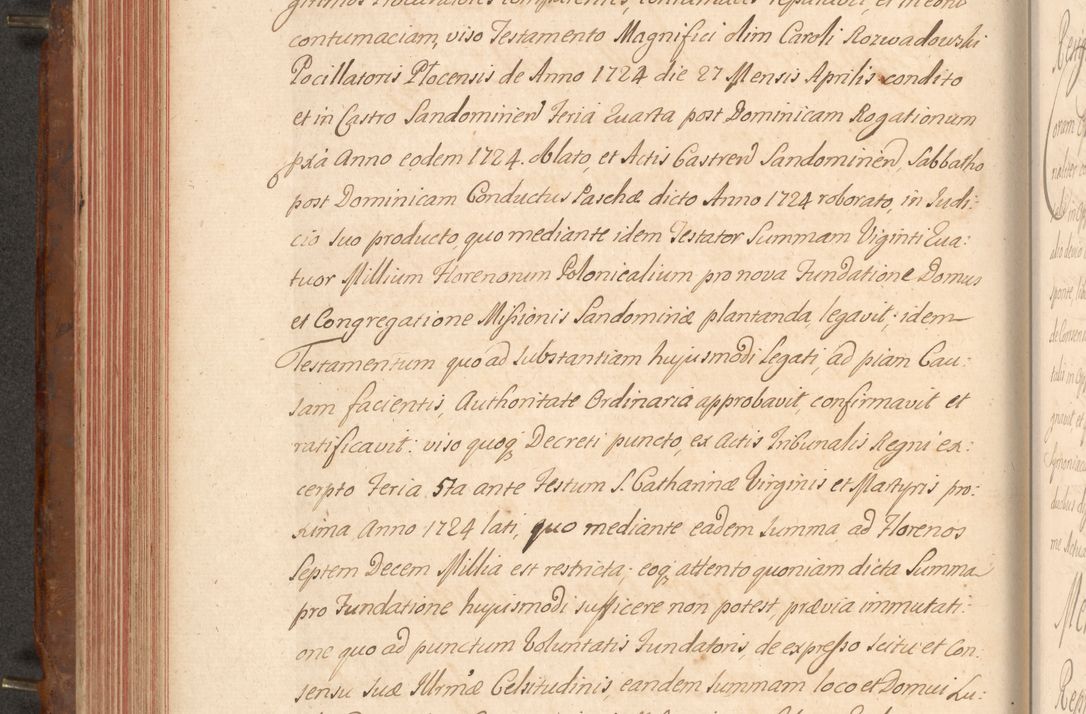 contumaciam, viso Testamento Magnifici olim Caroli Rozwadowski
Pocillatoris Płocensis de Anno 1724 die 27 Mensis Aprilis condito
et in Castro Sandomirien Feria Quarta post Dominicam Rogationum
pxa Anno eodem 1724. oblato, et Actis Castren Sandomirien, Sabbatho
post Dominicam Conductus Paschæ dicto Anno 1724 roborato, in Judi:
cio suo producto, quo mediante idem Testator Summam Viginti Qua:
tuor Millium Florenorum Polonicalium pro nova Fundatione Domus
et Congregatione Missionis Sandomiriæ plantanda, legavit; idem
Testamentum quo ad substantiam hujusmodi Legati, ad piam Cau:
sam facientis, Authoritate Ordinaria approbavit, confirmavit et
ratificavit: viso quoq Decreti puncto, ex Actis Tribunalis Regni ex:
cerpto Feria 5ta ante Festum S. Catharinæ Virginis et Martyris pro:
xima Anno 1724 lati, quo mediante eadem summa ad Florenos
Septem Decem Millia est restricta; eoq attento quoniam dicta Summa
pro Fundatione hujusmodi sufficere non potest, prævia immutati:
one quo ad punctum Voluntatis Fundatoris, de expresso scitu et Con:
sensu Suæ Illrmæ Celsitudinis, eandem summam loco et Domui Lu: